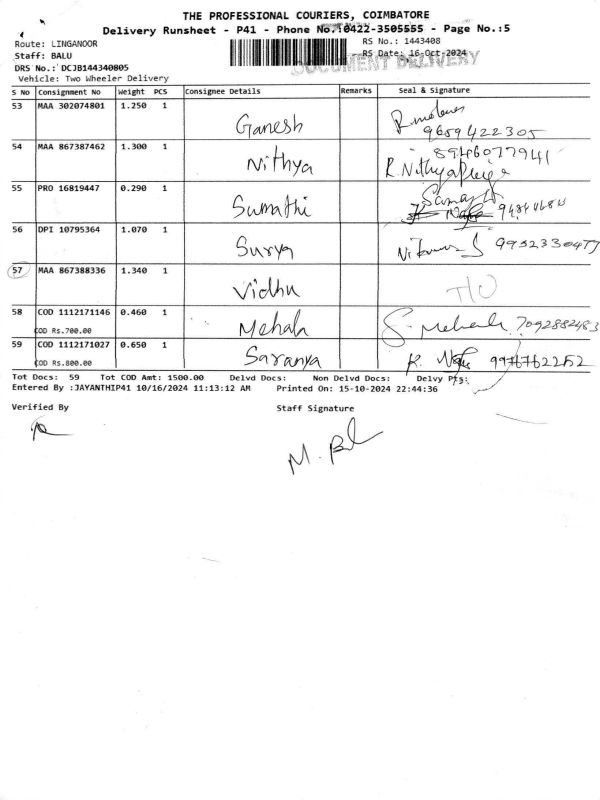 THE PROFESSIONAL COURIERS, COIMBATORE
Delivery Runsheet - P41 - Phone No.:0422-3505555 - Page No.:5
Route: LINGANOOR
RS No.: 1443408
DOCUMENT DELIVERY
Staff: BALU
RS Date: 16-Oct-2024
DRS No.: DCJB144340805
Vehicle: Two Wheeler Delivery
S No Consignment No Weight PCS Consignee Details Remarks Seal & Signature
53 MAA 302074801 1.250 1 Ganesh
9659422305
54 MAA 867387462 1.300 1 Nithya 8946077941
R. Nithyapriya
55 PRO 16819447 0.290 1 Sumathi
56 DPI 10795364 1.070 1 Surya
57 MAA 867388336 1.340 1 Vidhu T/O
58 COD 1112171146 0.460 1 Mehala S. Mehala 7092882483
COD Rs.700.00
59 COD 1112171027 0.650 1 Saranya K. 9976762252
COD Rs.800.00
Tot Docs: 59 Tot COD Amt: 1500.00 Delvd Docs: Non Delvd Docs: Delvy Pts:
Entered By :JAYANTHIP41 10/16/2024 11:13:12 AM Printed On: 15-10-2024 22:44:36
Verified By Staff Signature
M. Bal